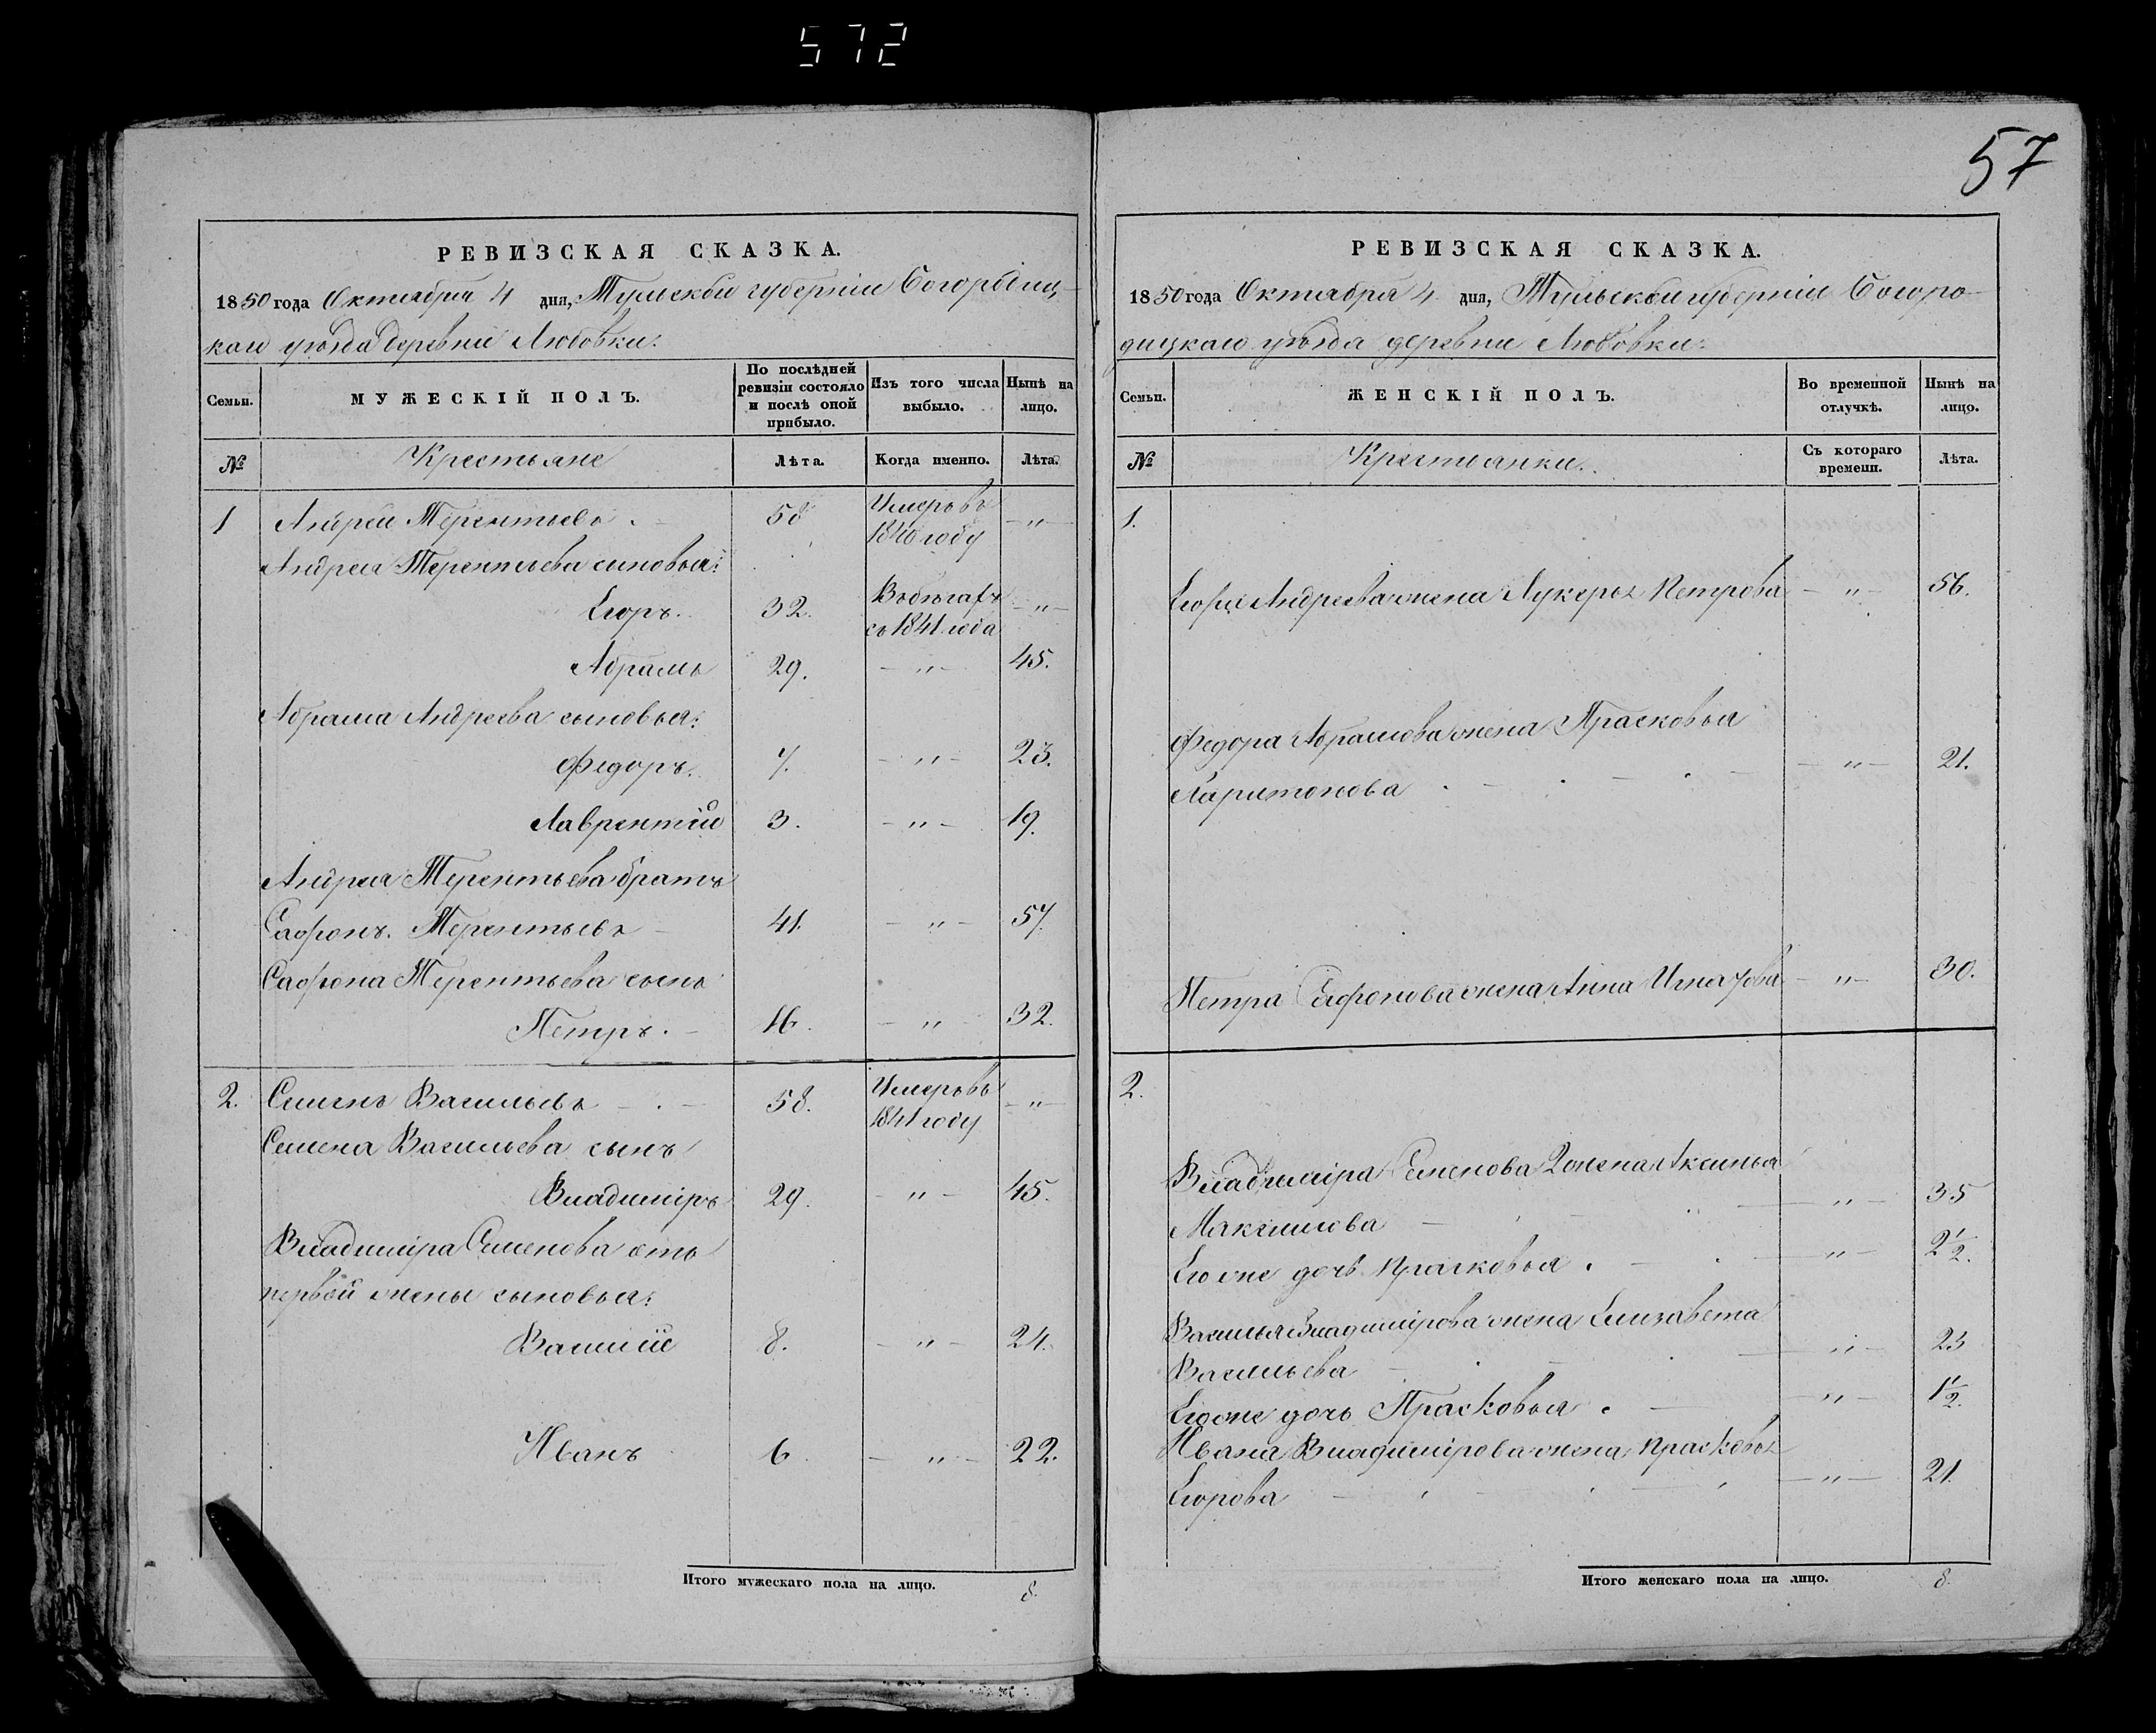 572
57
РЕВИЗСКАЯ СКАЗКА.
1850 года Октября 4 дня, Тульской губерніи Богородиц-
каго уѣзда деревни Любовки.
Семьи. МУЖЕСКІЙ ПОЛЪ. По послѣдней ревизіи состояло и послѣ оной прибыло. Изъ того числа выбыло. Нынѣ на лицо.
№ Крестьяне Лѣта. Когда именно. Лѣта.
1 Андрей Терентьевъ 58 Умеръ въ 1840 году -"-
Андрея Терентьева сыновья:
Егоръ. 32. Въ бѣгахъ съ 1841 года -"-
Абрамъ 29. -"- 45.
Абрама Андреева сыновья:
Федоръ. 7. -"- 23.
Лаврентій 3. -"- 19.
Андрея Терентьева братъ
Сафронъ Терентьевъ 41. -"- 57.
Сафрона Терентьева сынъ
Петръ. 16. -"- 32.
2. Семенъ Васильевъ 58. Умеръ въ 1841 году -"-
Семена Васильева сынъ
Владиміръ 29. -"- 45.
Владиміра Семенова отъ
первой жены сыновья:
Василій 8. -"- 24.
Иванъ 6. -"- 22.
Итого мужескаго пола на лицо. 8.
РЕВИЗСКАЯ СКАЗКА.
1850 года Октября 4 дня, Тульской губерніи Богоро-
дицкаго уѣзда деревни Любовки.
Семьи. ЖЕНСКІЙ ПОЛЪ. Во временной отлучкѣ. Нынѣ на лицо.
№ Крестьянки. Съ котораго времени. Лѣта.
1.
Егора Андреева жена Лукерья Петрова -"- 56.
Федора Абрамова жена Прасковья
Харитонова -"- 21.
Петра Сафронова жена Анна Игнатова -"- 30.
2.
Владиміра Семенова 2 жена Аксинья
Максимова -"- 35
Его же дочь Прасковья. -"- 2½.
Василья Владимірова жена Елизавета
Васильева -"- 23
Его же дочь Прасковья. -"- 1½.
Ивана Владимірова жена Прасковья
Егорова -"- 21.
Итого женскаго пола на лицо. 8.